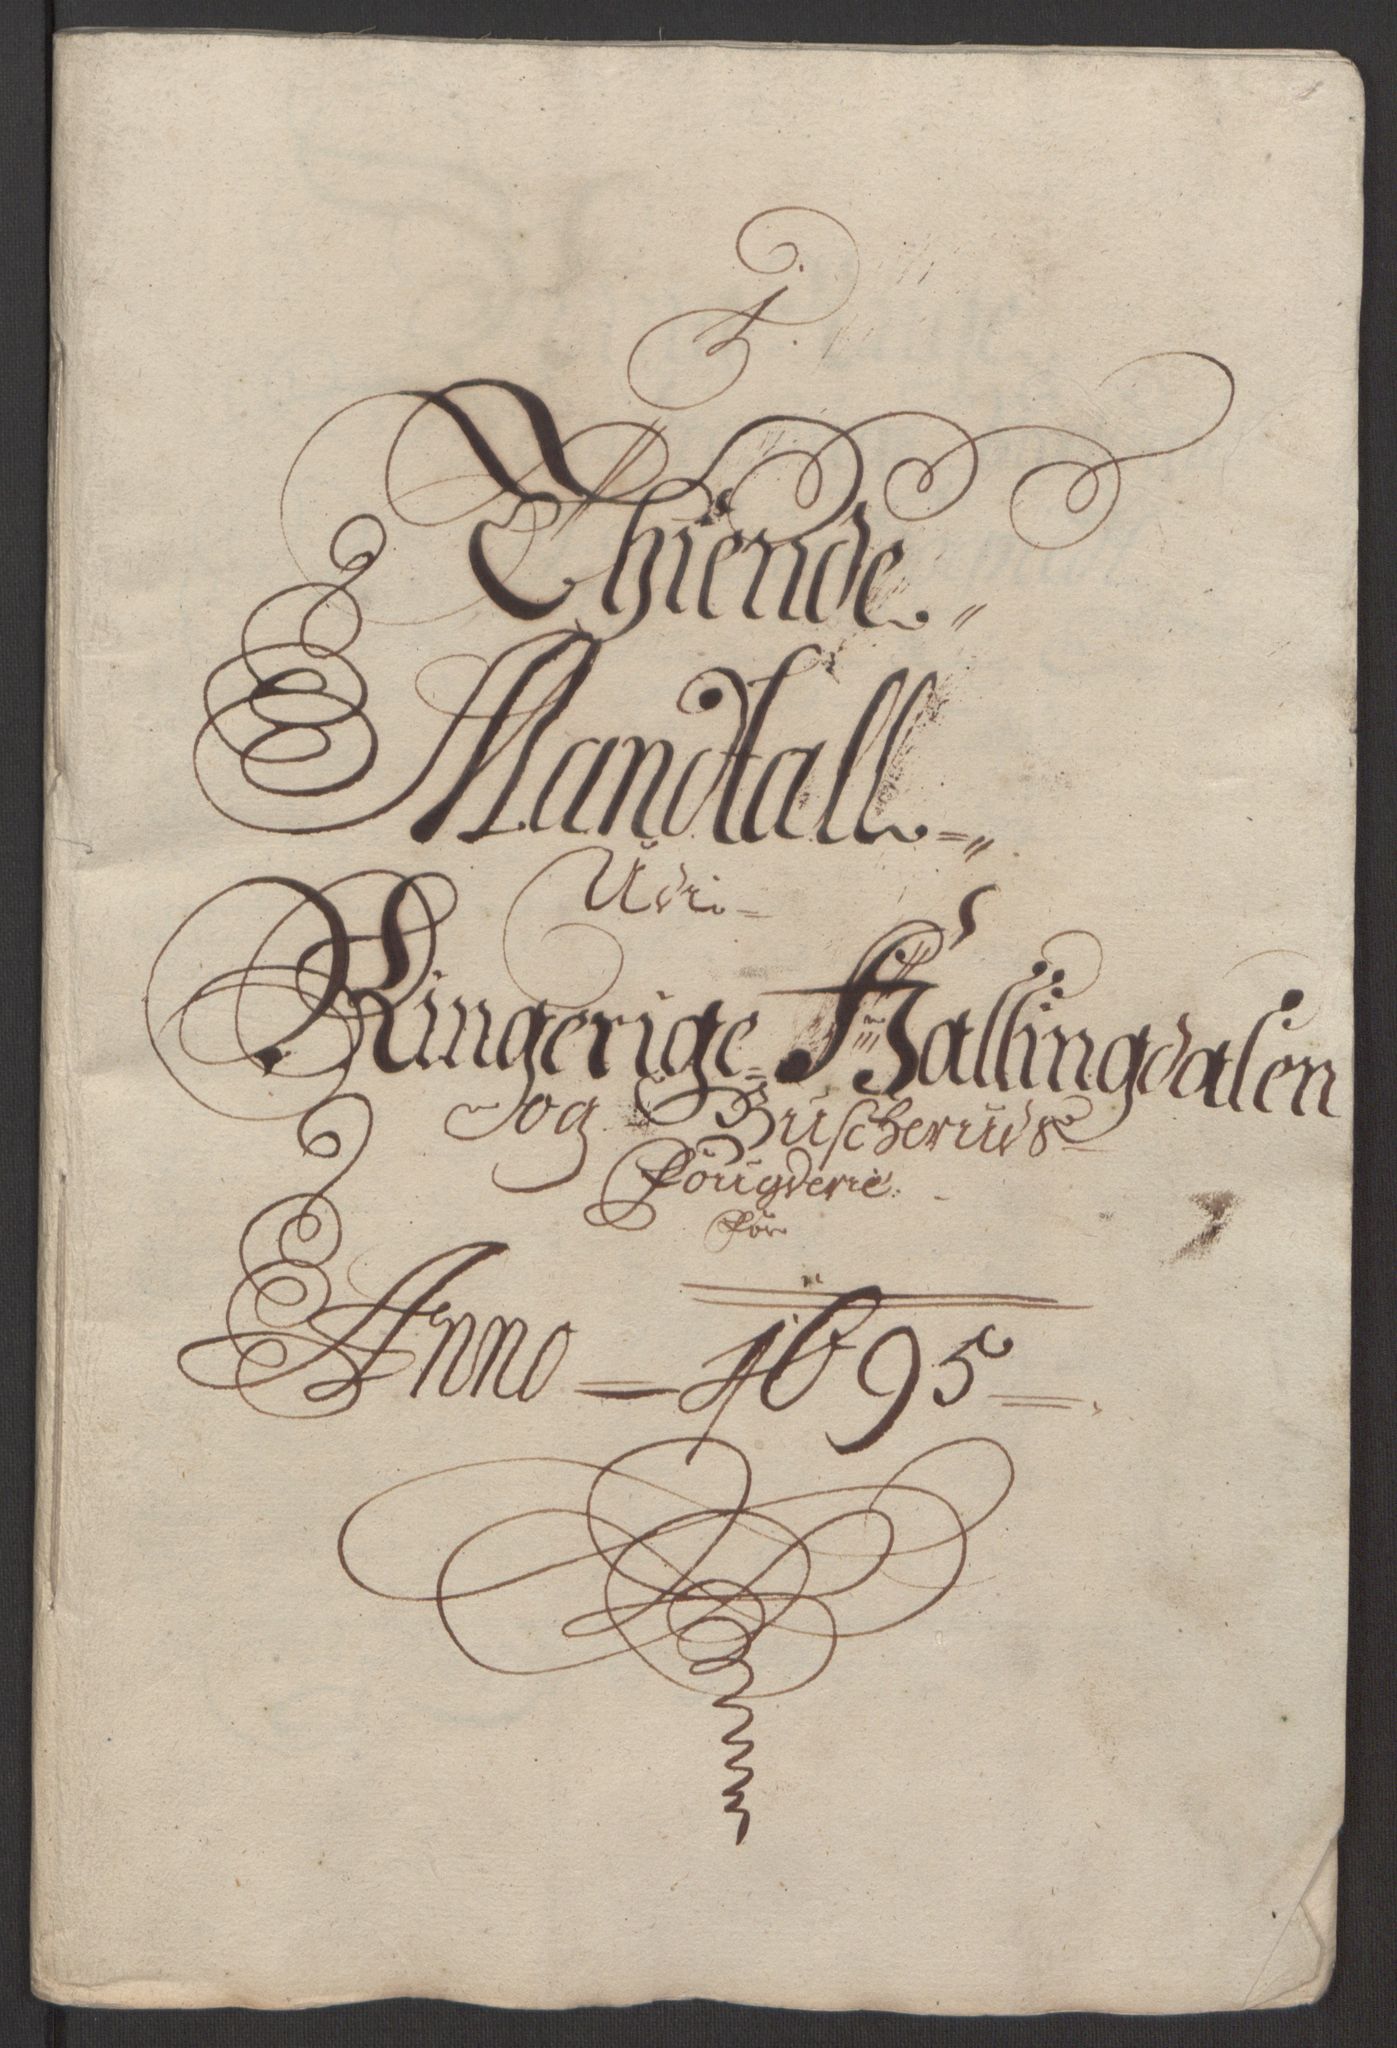 Thiende
Mandtall
Udi
Ringerige Hallingdalen
og Buscheruds
Fougderie
for
Anno 1695